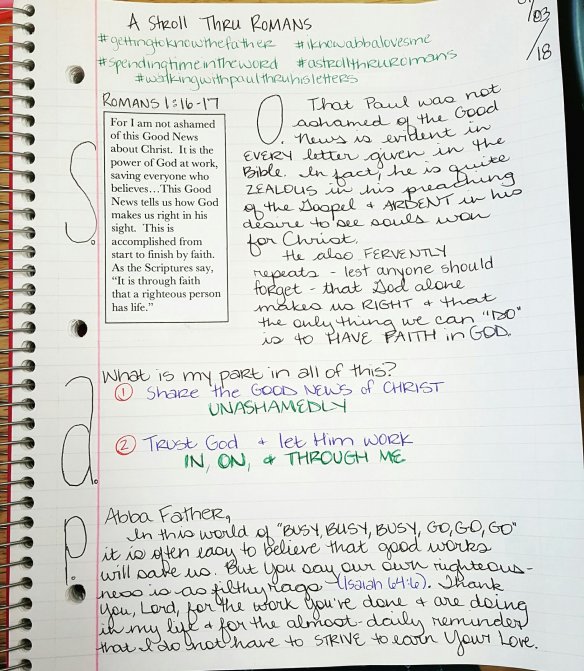 A Stroll Thru Romans
01/03/18
#gettingtoknowthefather #iknowabbalovesme
#spendingtimeintheword #astrollthruromans
#walkingwithpaulthruhisletters
Romans 1:16-17
S.
For I am not ashamed
of this Good News
about Christ. It is the
power of God at work,
saving everyone who
believes...This Good
News tells us how God
makes us right in his
sight. This is
accomplished from
start to finish by faith.
As the Scriptures say,
“It is through faith
that a righteous person
has life.”
O.
That Paul was not
ashamed of the Good
News is evident in
EVERY letter given in the
Bible. In fact, he is quite
ZEALOUS in his preaching
of the Gospel + ARDENT in his
desire to see souls won
for Christ.
He also FERVENTLY
repeats - lest anyone should
forget - that God alone
makes us RIGHT + that
the only thing we can "DO"
is to HAVE FAITH in GOD.
a.
What is my part in all of this?
1 Share the GOOD NEWS of CHRIST
UNASHAMEDLY
2 Trust God + let Him work
IN, ON, & THROUGH ME
p.
Abba Father,
In this world of "BUSY, BUSY, BUSY, GO, GO, GO"
it is often easy to believe that good works
will save us. But You say our own righteous-
ness is as filthy rags (Isaiah 64:6). Thank
You, Lord, for the work You've done + are doing
in my life + for the almost-daily reminder
that I do not have to STRIVE to earn Your Love.